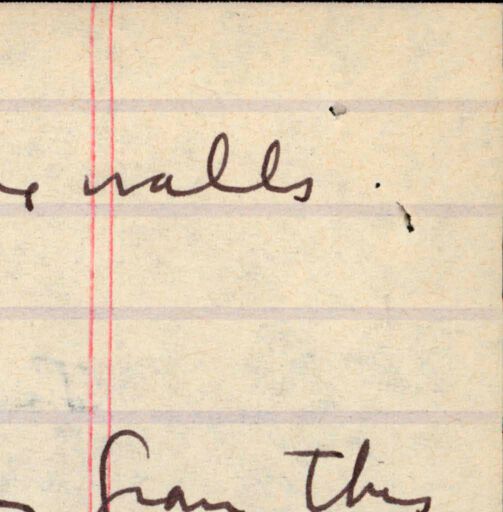 walls.
from this